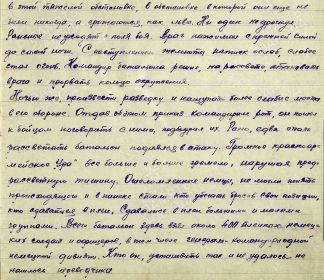 в этой тяжелой обстановке, в обстановке в которой они еще не
были никогда, а сражаются, как львы. Ни один не дрогнул.
Раненые не уходят с поля боя. Враг нажимал с прежней силой
до самой ночи. С наступлением темноты натиск ослаб, слабее
стал огонь. Командир батальона решил, на рассвете атаковать
врага и прорвать кольцо окружения.
Ночью же, произвести разведку и нащупать более слабые места
в его обороне. Отдав об этом приказ командирам рот, он пошел
к бойцам поговорить с ними, подбодрив их. Рано, едва стало
рассветать батальон поднялся в атаку. Громкое красноар-
мейское "Ура" все больше и больше гремело, нарушая пред-
рассветную тишину. Ошеломленные немцы, не могли понять
происходящего и в панике стали кто убегать бросив свои позиции,
кто сдаваться в плен. Сдавались в плен большими и малыми
группами. Всего батальон здесь взял около 400 пленных немец-
ких солдат и офицеров, в том числе генерала командира одной
немецкой дивизии. Кто он, установить так и не удалось не
нашлось переводчика